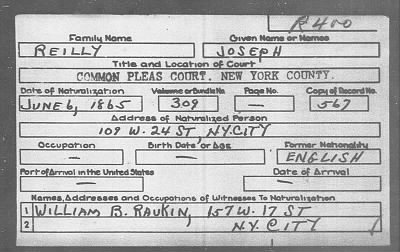 R400
Family Name Given Name or Names
REILLY JOSEPH
Title and Location of Court
COMMON PLEAS COURT. NEW YORK COUNTY.
Date of Naturalization Volume or Bundle No. Page No. Copy of Record No.
JUNE 6, 1865 309 — 567
Address of Naturalized Person
109 W. 24 ST, N.Y. CITY
Occupation Birth Date or Age Former Nationality
— — ENGLISH
Port of Arrival in the United States Date of Arrival
— —
Names, Addresses and Occupations of Witnesses To Naturalization
1 WILLIAM B. RAUKIN, 157 W. 17 ST
2 N.Y. CITY